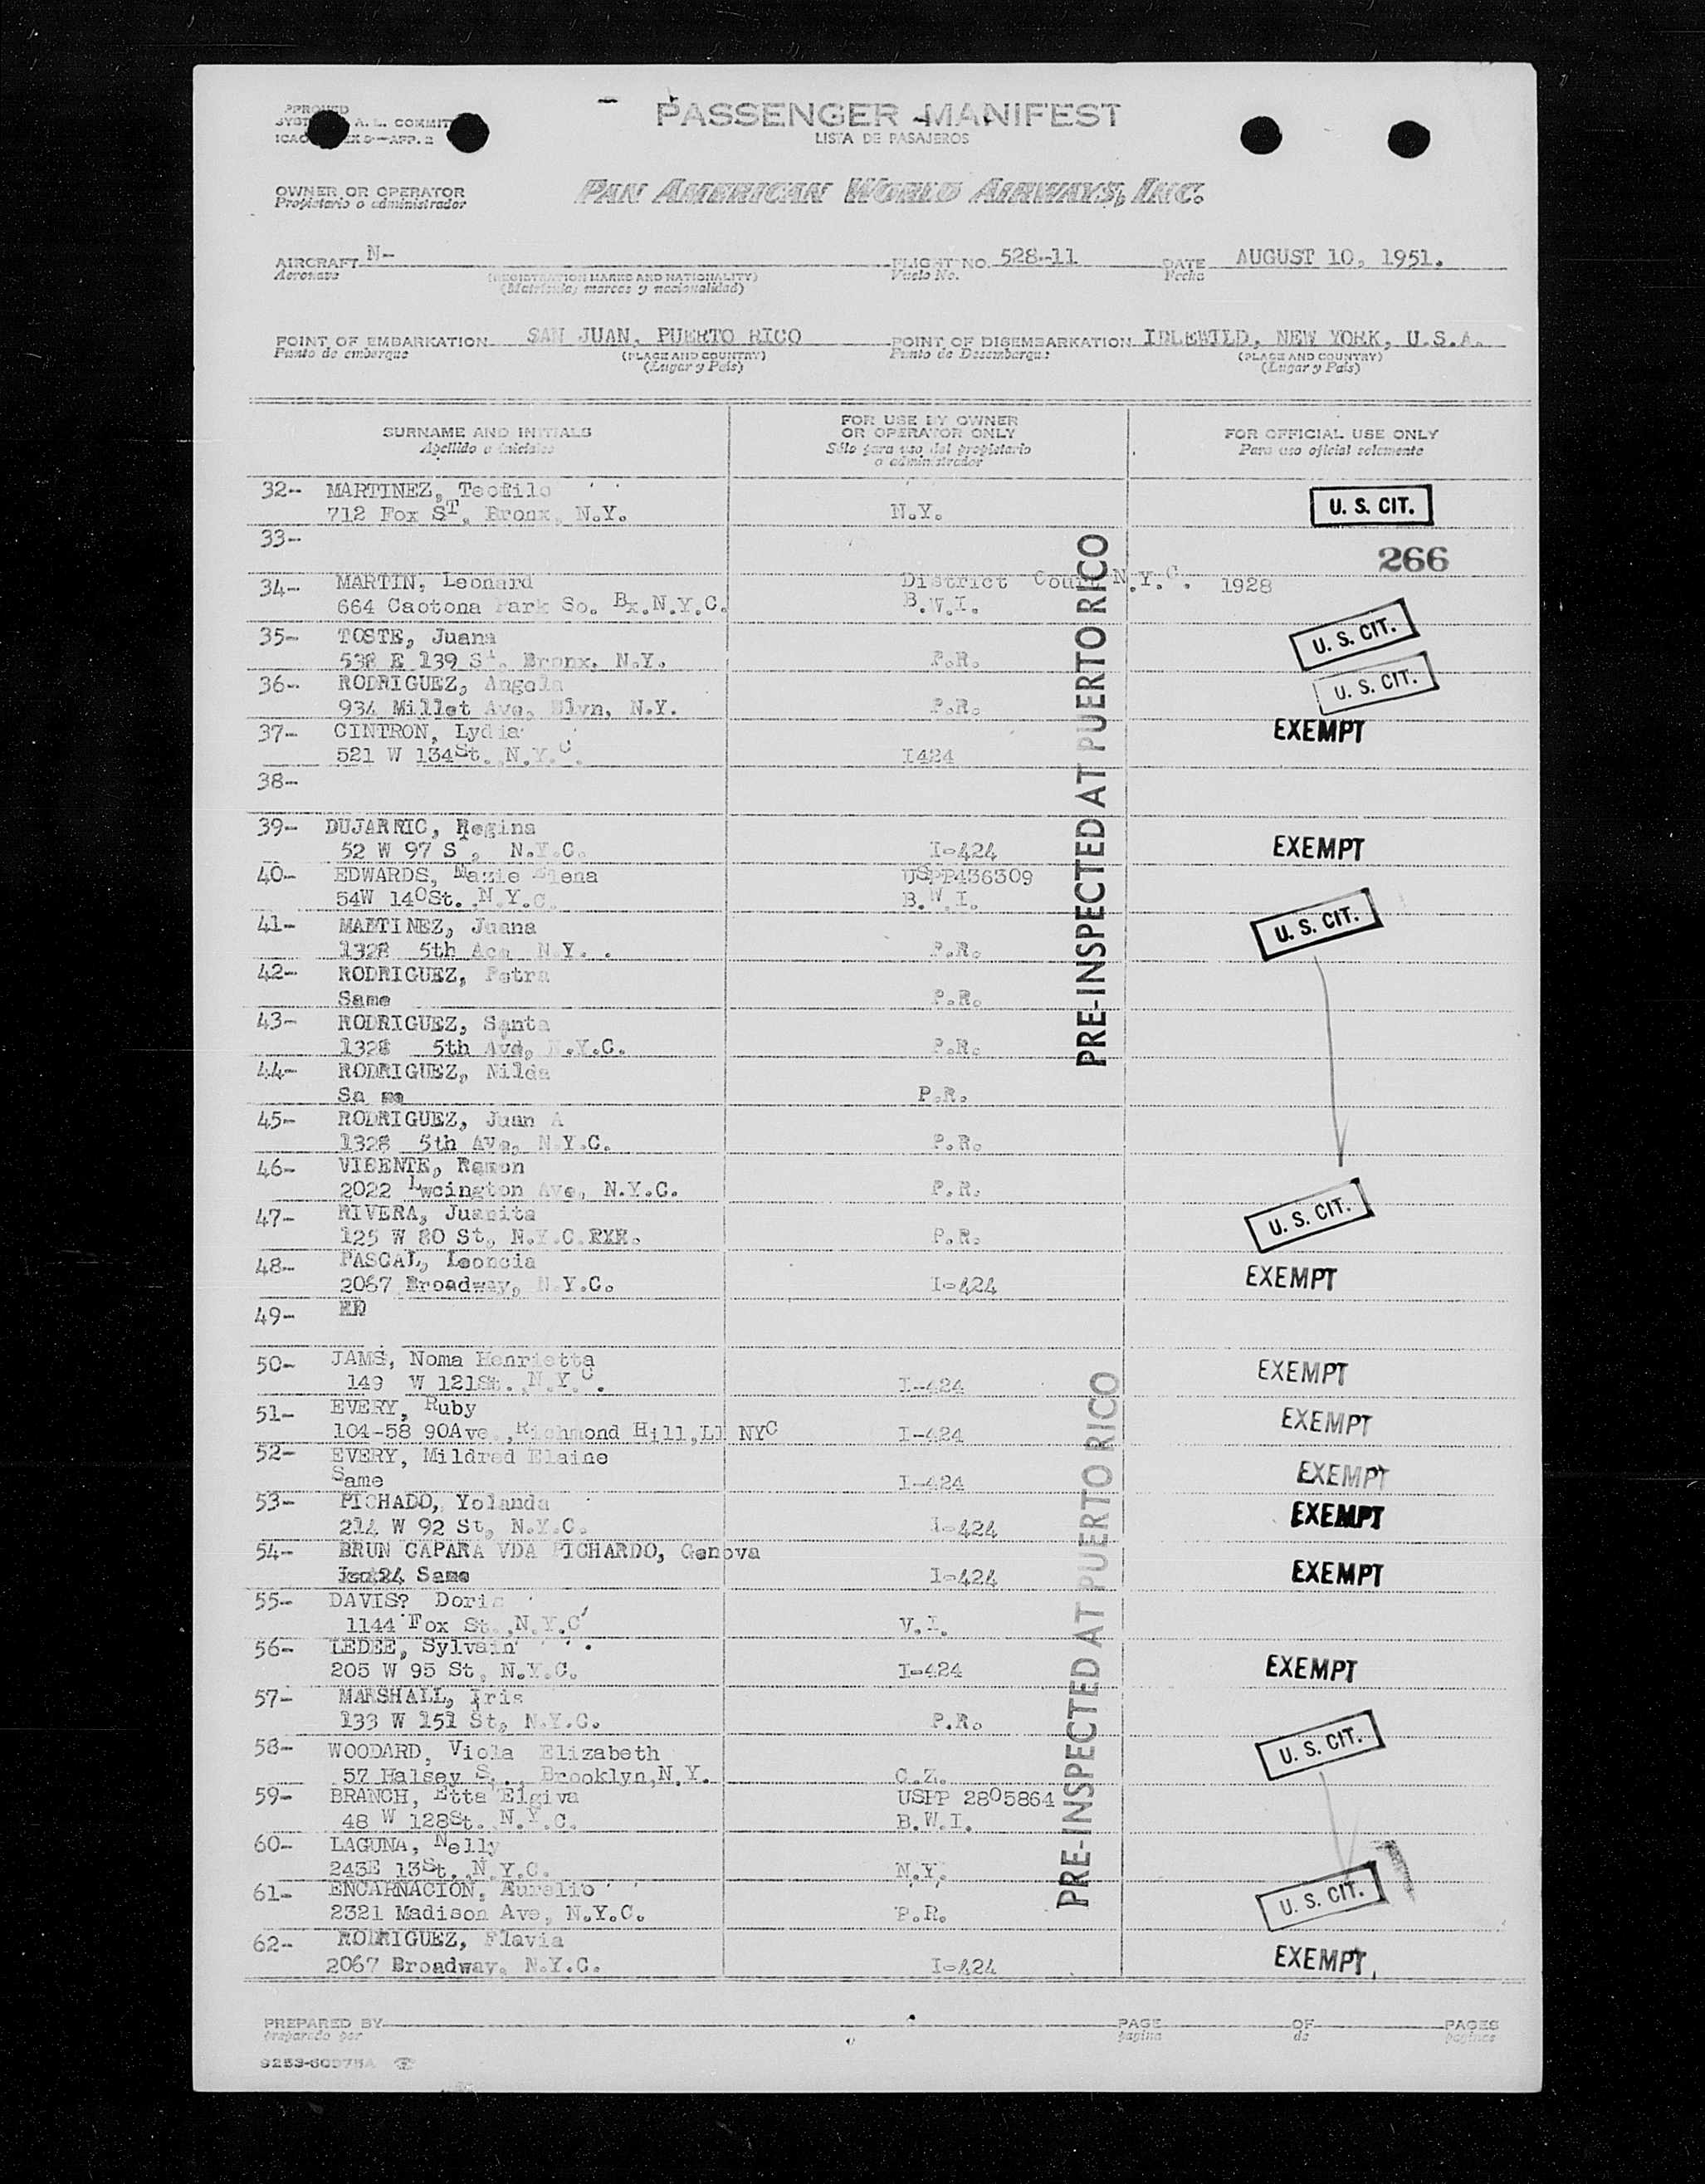 PASSENGER MANIFEST
LISTA DE PASAJEROS
OWNER OR OPERATOR
Propietario o administrador
PAN AMERICAN WORLD AIRWAYS, INC.
AIRCRAFT N- FLIGHT NO. 528-11 DATE AUGUST 10, 1951.
Aeronave (REGISTRATION MARKS AND NATIONALITY) Vuelo No. Fecha
(Matricula, marcas y nacionalidad)
POINT OF EMBARKATION SAN JUAN, PUERTO RICO POINT OF DISEMBARKATION IDLEWILD, NEW YORK, U.S.A.
Punto de embarque (PLACE AND COUNTRY) Punto de Desembarque (PLACE AND COUNTRY)
(Lugar y País) (Lugar y País)
SURNAME AND INITIALS FOR USE BY OWNER OR OPERATOR ONLY FOR OFFICIAL USE ONLY
Apellido e iniciales Sólo para uso del propietario o administrador Para uso oficial solamente
32-- MARTINEZ, Teofilo
712 Fox ST, Bronx, N.Y. N.Y. U. S. CIT.
33--
266
34-- MARTIN, Leonard District Court N.Y.C. 1928
664 Caotona Park So. Bx.N.Y.C. B.W.I.
35- TOSTE, Juana U. S. CIT.
538 E 139 St. Bronx, N.Y. P.R.
36-- RODRIGUEZ, Angela U. S. CIT.
934 Millet Ave, Blvn, N.Y. P.R.
37- CINTRON, Lydia EXEMPT
521 W 134St. N.Y.C. I424
38--
39-- DUJARRIC, Regina
52 W 97 S , N.Y.C. I-424 EXEMPT
40-- EDWARDS, Mazie Elena USPP436309
54W 140St. N.Y.C. B.W.I.
41- MARTINEZ, Juana U. S. CIT.
1328 5th Ace N.Y. . P.R.
42- RODRIGUEZ, Petra
Same P.R.
43- RODRIGUEZ, Santa
1328 5th Ave, N.Y.C. P.R.
44- RODRIGUEZ, Nilda
Sa me P.R.
45- RODRIGUEZ, Juan A
1328 5th Ave, N.Y.C. P.R.
46- VICENTE, Ramon
2022 Lwcington Ave, N.Y.C. P.R.
47- RIVERA, Juanita U. S. CIT.
125 W 80 St, N.Y.C. P.R.
48- PASCAL, Leoncia
2067 Broadway, N.Y.C. I-424 EXEMPT
49-
50- JAMS, Noma Henrietta
149 W 121St. N.Y.C. I-424 EXEMPT
51- EVERY, Ruby
104-58 90Ave.,Richmond Hill,LI NYC I-424 EXEMPT
52- EVERY, Mildred Elaine
Same I-424 EXEMPT
53- PICHADO, Yolanda
214 W 92 St, N.Y.C. I-424 EXEMPT
54- BRUN CAPARA VDA PICHARDO, Genova
Same I-424 EXEMPT
55- DAVIS? Doris
1144 Fox St.,N.Y.C V.I.
56- LEDEE, Sylvain
205 W 95 St, N.Y.C. I-424 EXEMPT
57- MARSHALL, Iris
133 W 151 St, N.Y.C. P.R.
58- WOODARD, Viola Elizabeth U. S. CIT.
57 Halsey S ., Brooklyn,N.Y. C.Z.
59- BRANCH, Etta Elgiva USPP 2805864
48 W 128St. N.Y.C. B.W.I.
60- LAGUNA, Nelly
243E 13St. N.Y.C. N.Y.
61- ENCARNACION, Aurelio U. S. CIT.
2321 Madison Ave, N.Y.C. P.R.
62- RODRIGUEZ, Flavia
2067 Broadway, N.Y.C. I-424 EXEMPT
PRE-INSPECTED AT PUERTO RICO
PRE-INSPECTED AT PUERTO RICO
PREPARED BY PAGE OF PAGES
preparado por pagina de paginas